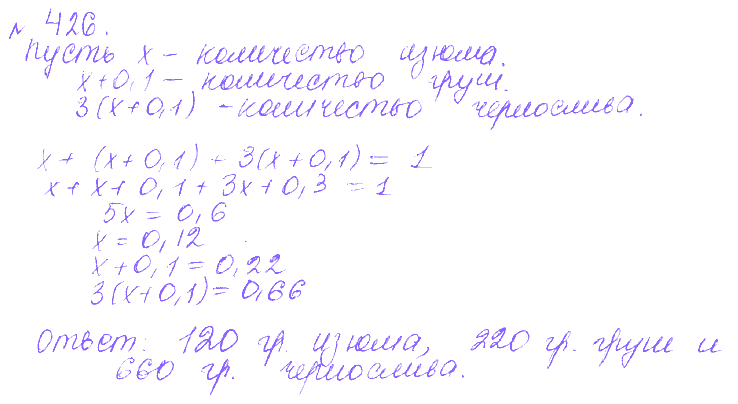 № 426.
Пусть x - количество изюма.
x+0,1 - количество груш.
3(x+0,1) - количество чернослива.
x + (x+0,1) + 3(x+0,1) = 1
x + x + 0,1 + 3x + 0,3 = 1
5x = 0,6
x = 0,12
x+0,1 = 0,22
3(x+0,1) = 0,66
Ответ: 120 гр. изюма, 220 гр. груш и
660 гр. чернослива.